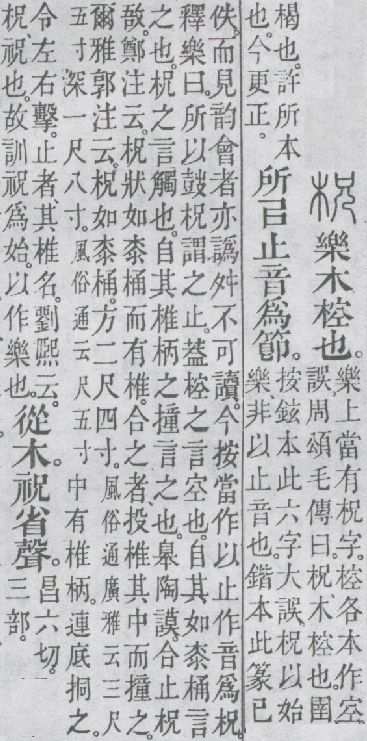 柷
樂木椌也。
樂上當有柷字。椌各本作空
誤。周頌毛傳曰。柷木椌也。圉
楬也。許所本
也。今更正。
所㠯止音爲節。
按鉉本此六字大誤。柷以始
樂非以止音也。鍇本此篆已
佚。而見韵會者亦譌舛不可讀。今按當作以止作音爲柷。
釋樂曰。所以鼓柷謂之止。葢椌之言空也。自其如桼桶言
之也。柷之言觸也。自其椎柄之撞言之也。皋陶謨。合止柷
敔。鄭注云。柷狀如桼桶而有椎。合之者。投椎其中而撞之。
爾雅郭注云。柷如桼桶。方二尺四寸。風俗通廣雅云三尺
五寸深一尺八寸。風俗通云尺五寸中有椎柄。連底挏之。
令左右擊。止者其椎名。劉熙云。
柷祝也。故訓祝爲始。以作樂也。
從木。祝省聲。
昌六切。
三部。